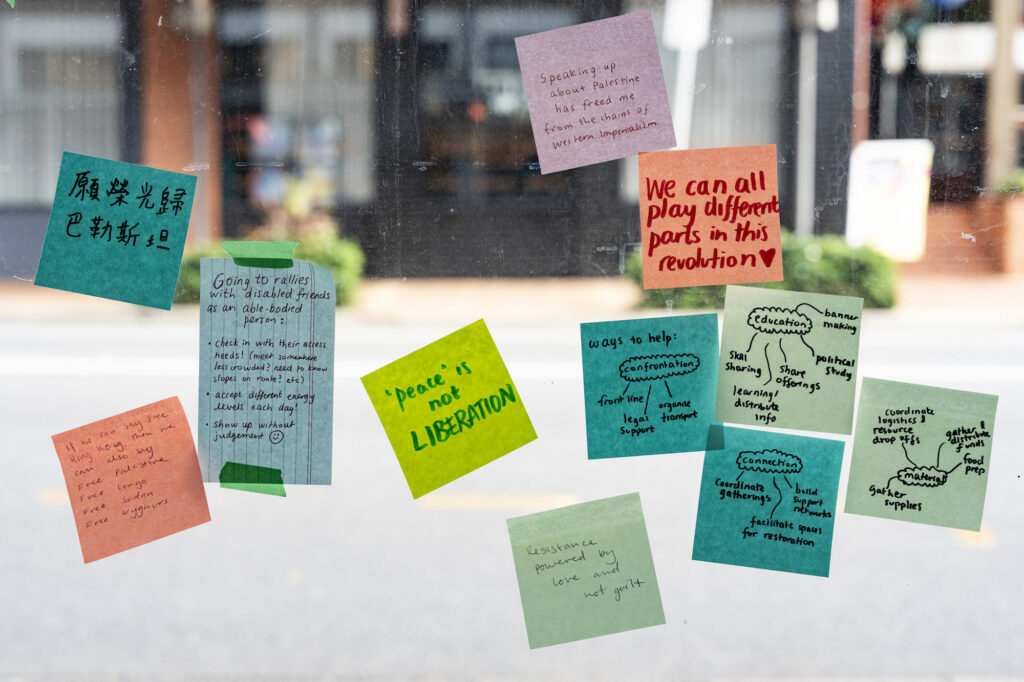 Speaking up
about Palestine
has freed me
from the chains of
Western Imperialism
We can all
play different
parts in this
revolution ♥
願榮光歸
巴勒斯坦
Going to rallies
with disabled friends
as an able-bodied
person:
• check in with their access
needs! (meet somewhere
less crowded? need to know
slopes on route? etc)
• accept different energy
levels each day!
• show up without
judgement ☺
If we can say Free
Hong Kong, then we
can also say
Free Palestine
Free Congo
Free Sudan
Free Uyghurs
'peace' is
not
LIBERATION
ways to help:
confrontation
front line
legal
support
organise
transport
education
banner
making
skill
sharing
share
offerings
political
study
learning/
distribute
info
connection
coordinate
gatherings
build
support
networks
facilitate spaces
for restoration
coordinate
logistics &
resource
drop offs
gather &
distribute
funds
material
food
prep
gather
supplies
Resistance
powered by
love and
not guilt